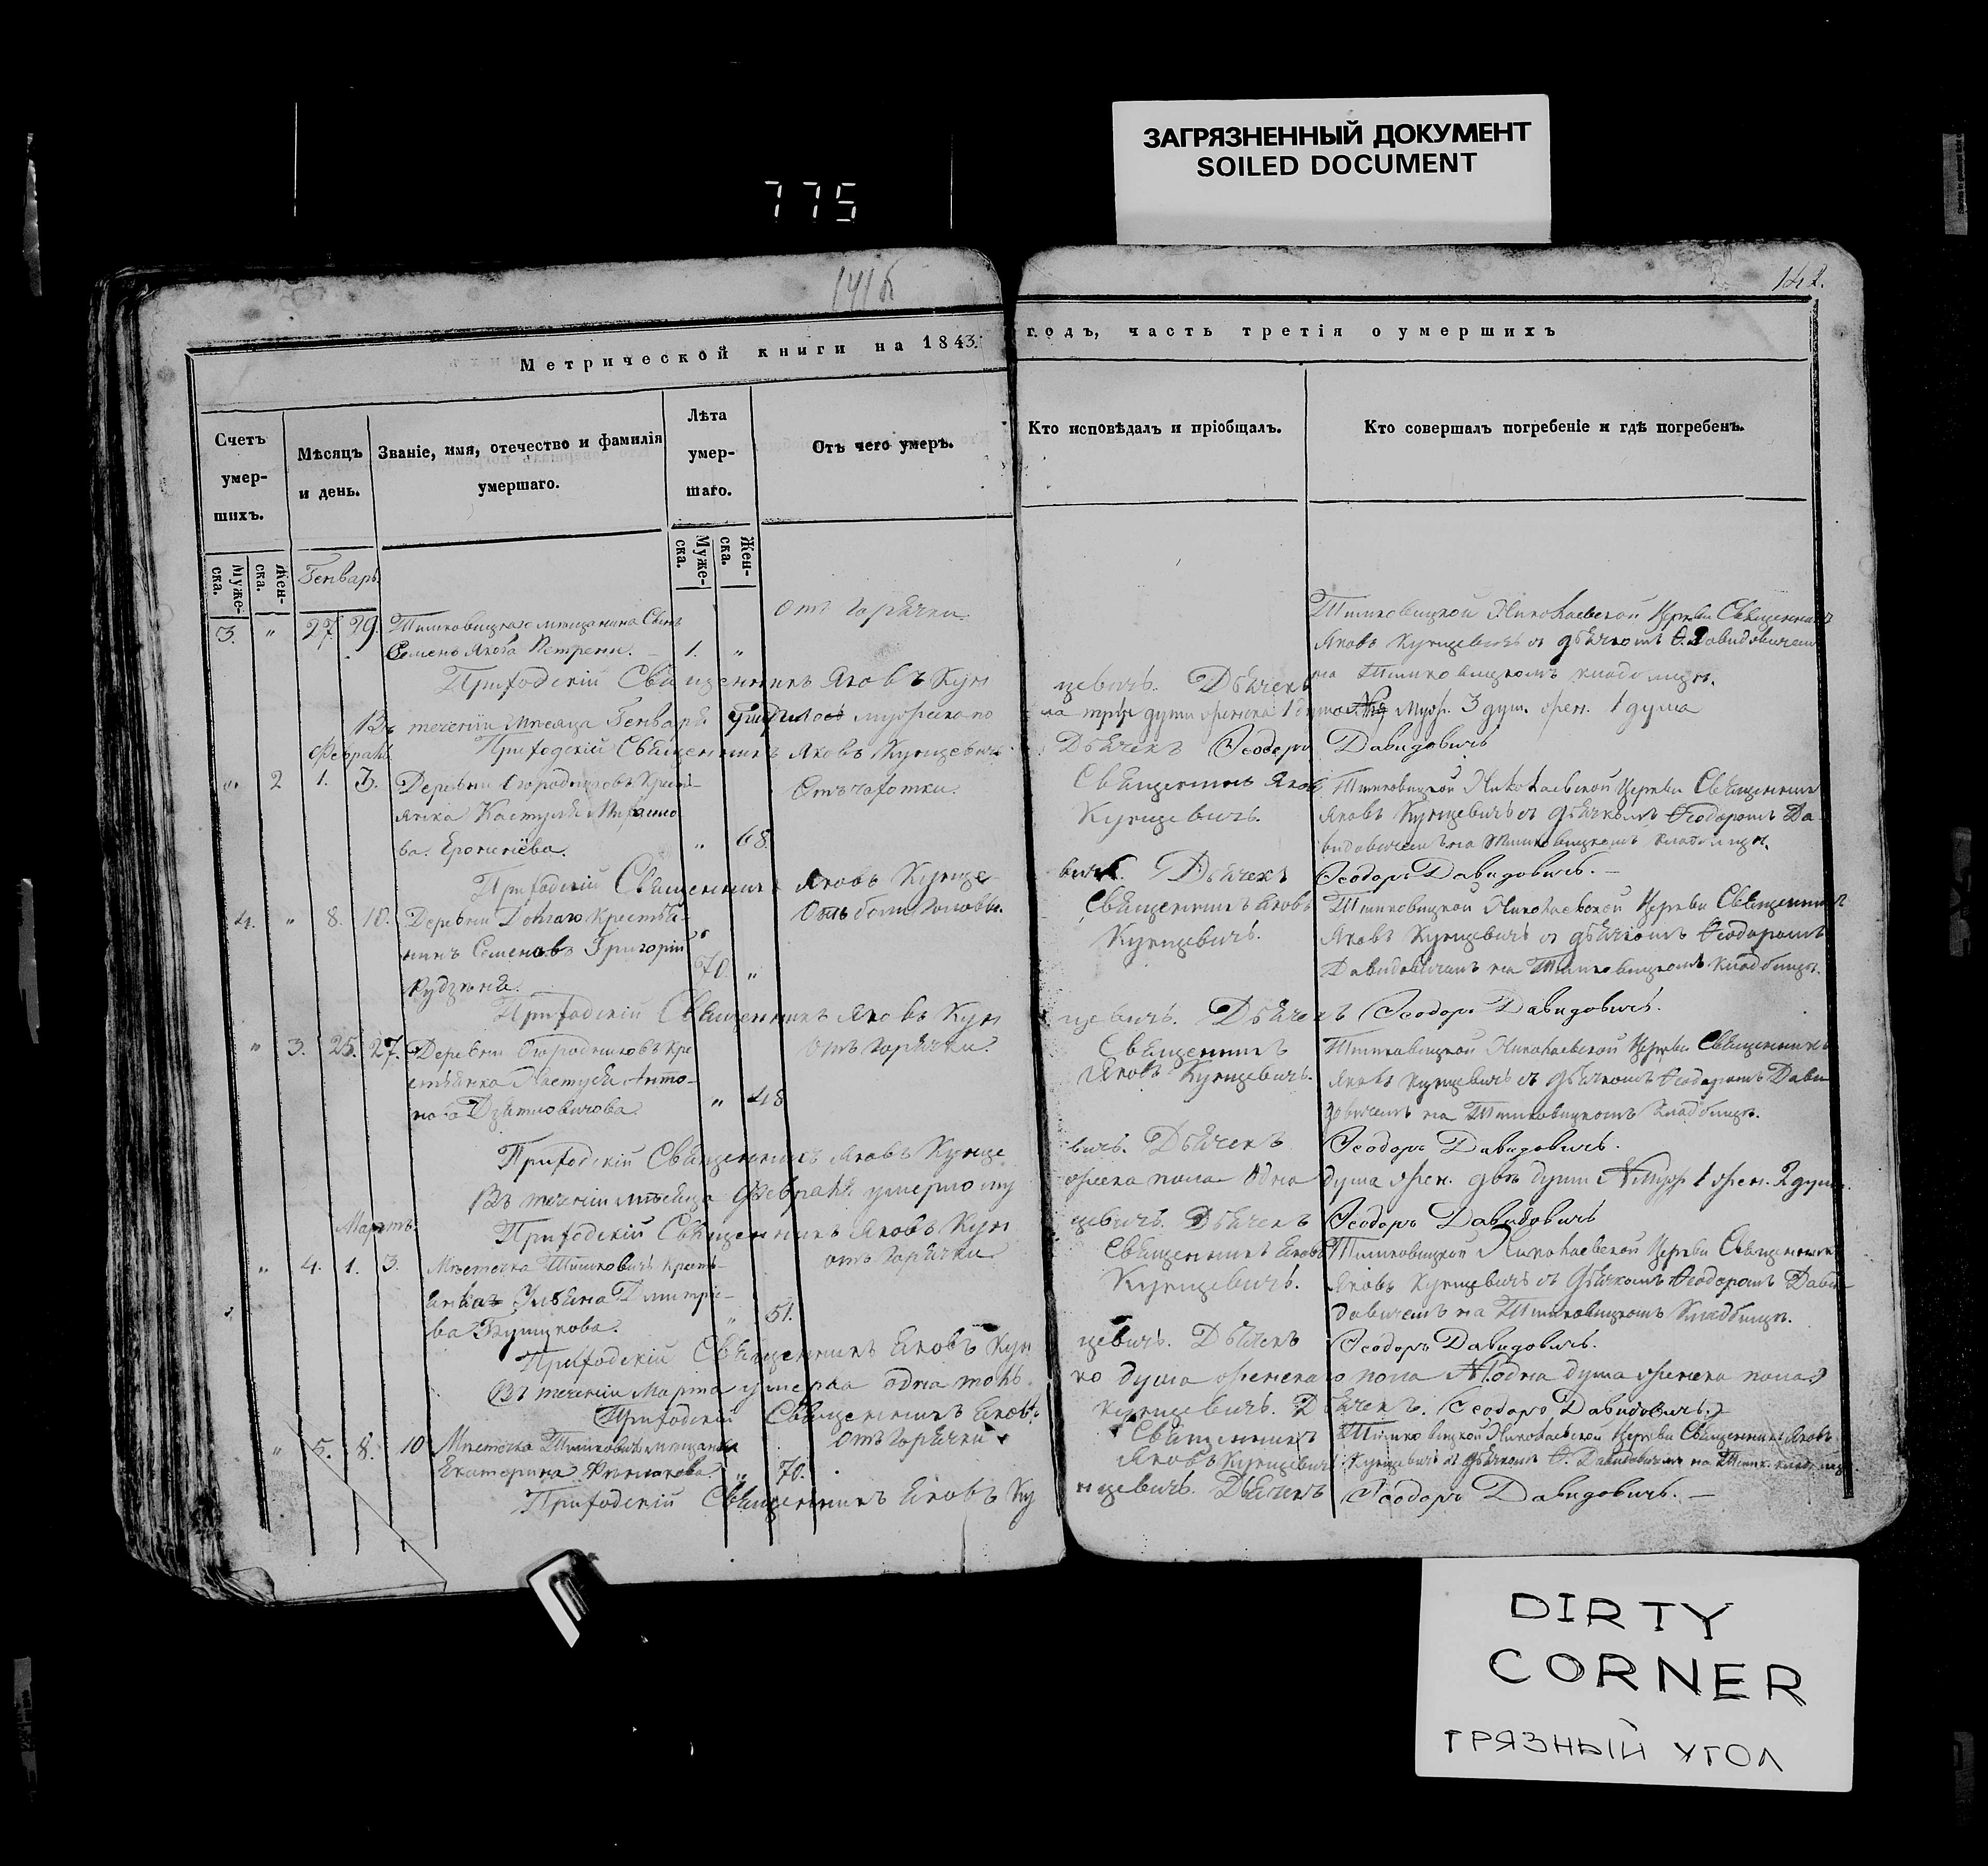 ЗАГРЯЗНЕННЫЙ ДОКУМЕНТ
SOILED DOCUMENT
775
141б
142.
Метрической книги на 1843. годъ, часть третія о умершихъ
Счетъ умер-шихъ.
Мѣсяцъ и день.
Званіе, имя, отечество и фамилія умершаго.
Лѣта умер-шаго.
Отъ чего умеръ.
Кто исповѣдалъ и пріобщалъ.
Кто совершалъ погребеніе и гдѣ погребенъ.
Муже-ска.
Жен-ска.
Муже-ска.
Жен-ска.
Генварь
3. " 27. 29.
Тимковицкаго мещанина Сынъ
Семенъ Якова Петрени. 1. "
отъ горячки
Тимковицкой Николаевской Церкви Священникъ
Яковъ Кунцевичъ съ дьячкомъ Ѳ. Давидовичемъ
на Тимковицкомъ кладбищѣ.
Приходскій Священникъ Яковъ Кунцевичъ. Дьячекъ
Въ теченіи месяца Генваря мужеска по
ла три души женска 1 душа Муж. 3 душ. жен. 1 душа
Приходскій Священникъ Яковъ Кунцевичъ. Дьячекъ Ѳеодоръ Давидовичъ
Февраль
" 2 1. 3.
Деревни Огородниковъ Кресть-
янка
ва. " 68.
Отъ чахотки.
Священникъ Яковъ
Кунцевичъ.
Тимковицкой Николаевской Церкви Священникъ
Яковъ Кунцевичъ съ дьячкомъ Ѳеодоромъ Да-
видовичемъ на Тимковицкомъ кладбищѣ.
Приходскій Священникъ Яковъ Кунцевичъ. Дьячекъ Ѳеодоръ Давидовичъ. —
4. " 8. 10.
Деревни Крестья-
нинъ Семеновъ Григорій
70. "
Отъ боли головы.
Священникъ Яковъ
Кунцевичъ.
Тимковицкой Николаевской Церкви Священникъ
Яковъ Кунцевичъ съ дьячкомъ Ѳеодоромъ
Давидовичемъ на Тимковицкомъ кладбищѣ.
Приходскій Священникъ Яковъ Кунцевичъ. Дьячекъ Ѳеодоръ Давидовичъ.
" 3. 25. 27.
Деревни Огородниковъ Кре
стьянка Настусья Анто-
нова " 48
отъ горячки.
Священникъ
Яковъ Кунцевичъ.
Тимковицкой Николаевской Церкви Священникъ
Яковъ Кунцевичъ съ дьячкомъ Ѳеодоромъ Дави
довичемъ на Тимковицкомъ кладбищѣ.
Приходскій Священникъ Яковъ Кунцевичъ. Дьячекъ Ѳеодоръ Давидовичъ.
Въ теченіи мѣсяца Февраля умерло му
жеска пола одна душа жен. двѣ души Муж 1 жен. 2 души
Приходскій Священникъ Яковъ Кунцевичъ. Дьячекъ Ѳеодоръ Давидовичъ
Мартъ
" 4. 1. 3.
Мѣстечка Тимковичъ Кресть-
янка Ульяна Димитріе-
ва " 51.
отъ горячки
Священникъ Яковъ
Кунцевичъ.
Тимковицкой Николаевской Церкви Священникъ
Яковъ Кунцевичъ съ дьячкомъ Ѳеодоромъ Дави
довичемъ на Тимковицкомъ кладбищѣ.
Приходскій Священникъ Яковъ Кунцевичъ. Дьячекъ Ѳеодоръ Давидовичъ.
Въ теченіи Марта умерла одна толь
ко душа женскаго пола одна душа женска пола
Приходскій Священникъ Яковъ Кунцевичъ. Дьячекъ. Ѳеодоръ Давидовичъ
" 5. 8. 10
Мѣстечка Тимковичъ мещанка
Екатерина " 70.
отъ горячки
Священникъ
Яковъ Кунцевичъ
Тимковицкой Николаевской Церкви Священникъ Яковъ
Кунцевичъ съ дьячкомъ Ѳ. Давидовичемъ на Тимк. кладбищѣ
Приходскій Священникъ Яковъ Кунцевичъ. Дьячекъ Ѳеодоръ Давидовичъ. —
DIRTY
CORNER
ГРЯЗНЫЙ УГОЛ